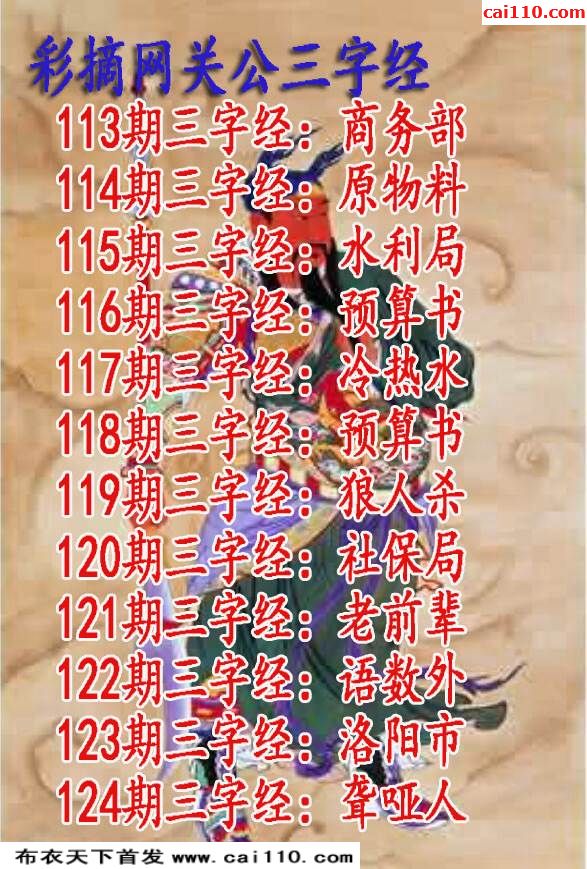 cai110.com
彩摘网关公三字经
113期三字经：商务部
114期三字经：原物料
115期三字经：水利局
116期三字经：预算书
117期三字经：冷热水
118期三字经：预算书
119期三字经：狼人杀
120期三字经：社保局
121期三字经：老前辈
122期三字经：语数外
123期三字经：洛阳市
124期三字经：聋哑人
布衣天下首发 www.cai110.com